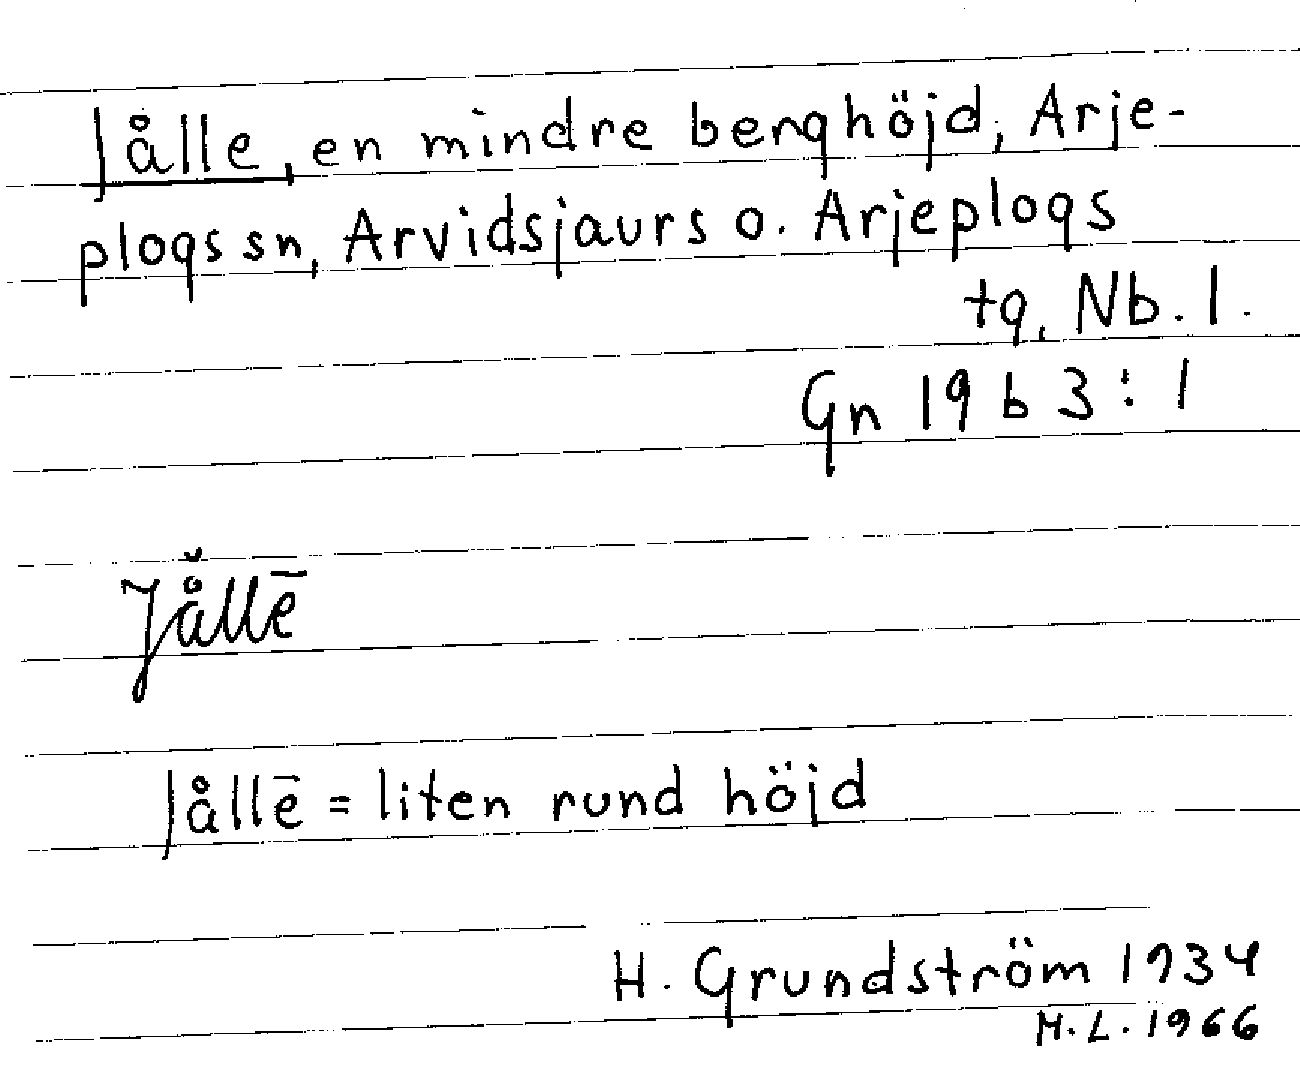 Jålle, en mindre berghöjd, Arje-
plogs sn, Arvidsjaurs o. Arjeplogs
tg, Nb. l.
Gn 19 b 3 : 1
Jå̆llē
Jållē = liten rund höjd
H. Grundström 1934
H. L. 1966